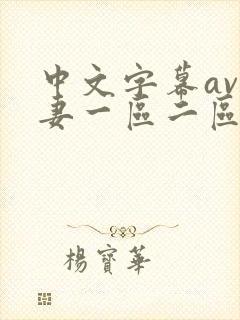 中文字幕av
妻一區二區
楊寶華